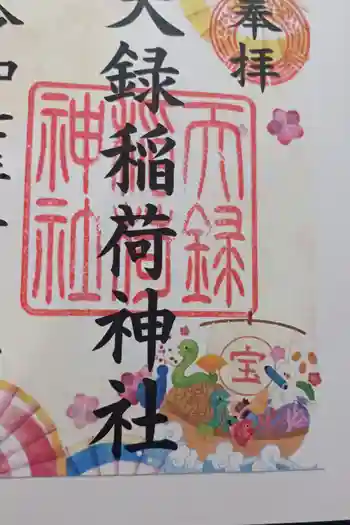 奉拝
天録稲荷神社
天録
稲荷
神社
宝
令和